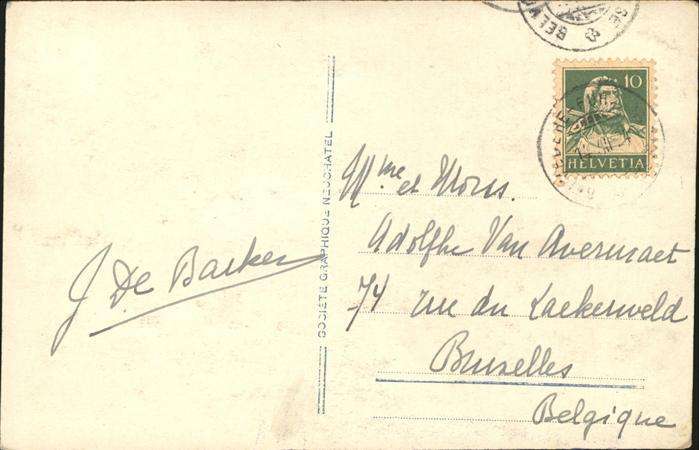 J. De Backer
SOCIÉTÉ GRAPHIQUE NEUCHATEL
10
HELVETIA
Mme et Mons.
Adolphe Van Avermaet
74 rue du Laekenveld
Bruxelles
Belgique